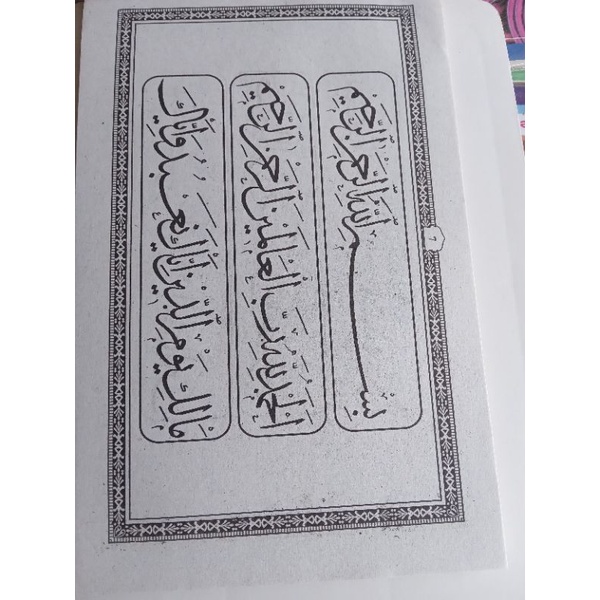 بِسْمِ اللَّهِ الرَّحْمٰنِ الرَّحِيمِ
الْحَمْدُ لِلَّهِ رَبِّ الْعَالَمِينَ الرَّحْمٰنِ الرَّحِيمِ
مَالِكِ يَوْمِ الدِّينِ إِيَّاكَ نَعْبُدُ وَإِيَّاكَ